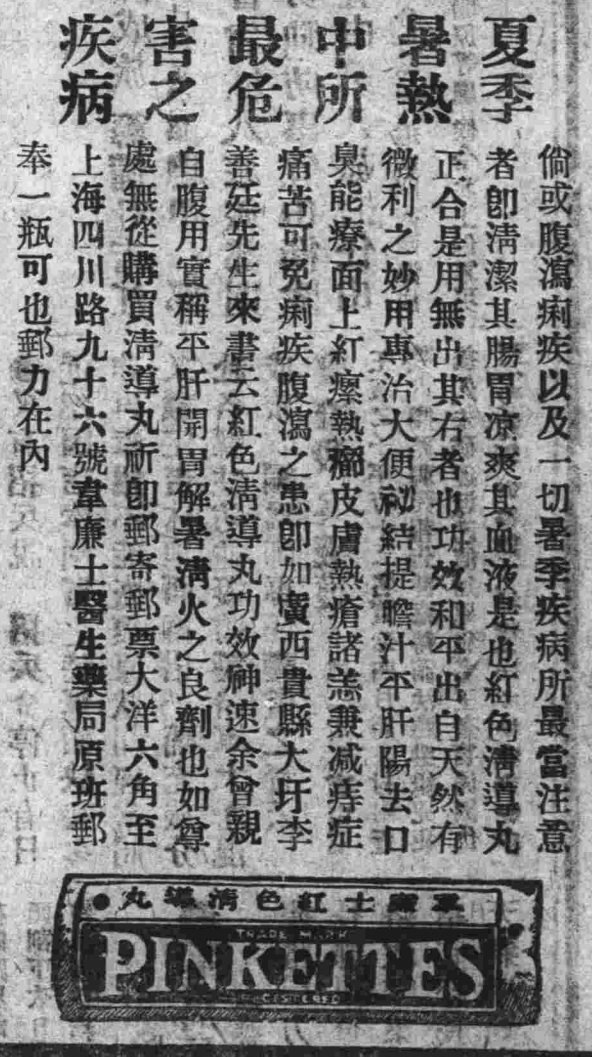 夏季
暑熱
中所
最危
害之
疾病
倘或腹瀉痢疾以及一切暑季疾病所最當注意
者卽清潔其腸胃凉爽其血液是也紅色清導丸
正合是用無出其右者也功效和平出自天然有
微利之妙用專治大便祕結提瞻汁平肝陽去口
臭能療面上紅瘰熱癤皮膚熱瘡諸恙兼减痔症
痛苦可免痢疾腹瀉之患卽如廣西貴縣大圩李
善廷先生來書云紅色淸導丸功效神速余曾親
自腹用實稱平肝開胃解暑淸火之良劑也如尊
處無從購買淸導丸祈卽郵寄郵票大洋六角至
上海四川路九十六號韋廉士醫生藥局原班郵
奉一瓶可也郵力在內
韋廉士紅色清導丸
TRADE MARK
PINKETTES
REGISTERED